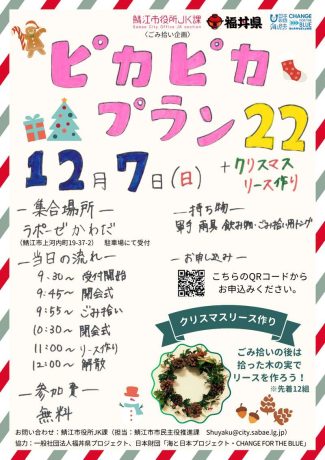 鯖江市役所JK課
Sabae City Office JK section
福井県
海と日本
CHANGE FOR THE BLUE
(ごみ拾い企画)
ピカピカ
プラン22
12月7日(日)
+クリスマス
リース作り
ー集合場所ー
ラポーゼかわだ
(鯖江市上河内町19-37-2) 駐車場にて受付
ー持ち物ー
軍手 雨具 飲み物・ごみ拾い用トング
ー当日の流れー
9:30〜 受付開始
9:45〜 開会式
9:55〜 ごみ拾い
10:30〜 閉会式
11:00〜 リース作り
12:00〜 解散
ーお申し込みー
こちらのQRコードから
お申込みください。
クリスマスリース作り
ごみ拾いの後は
拾った木の実で
リースを作ろう!
※先着12組
ー参加費ー
無料
お問い合わせ:鯖江市役所JK課(担当:鯖江市市民主役推進課 Shuyaku@city.sabae.lg.jp)
協力:一般社団法人福井県プロジェクト、日本財団「海と日本プロジェクト・CHANGE FOR THE BLUE」